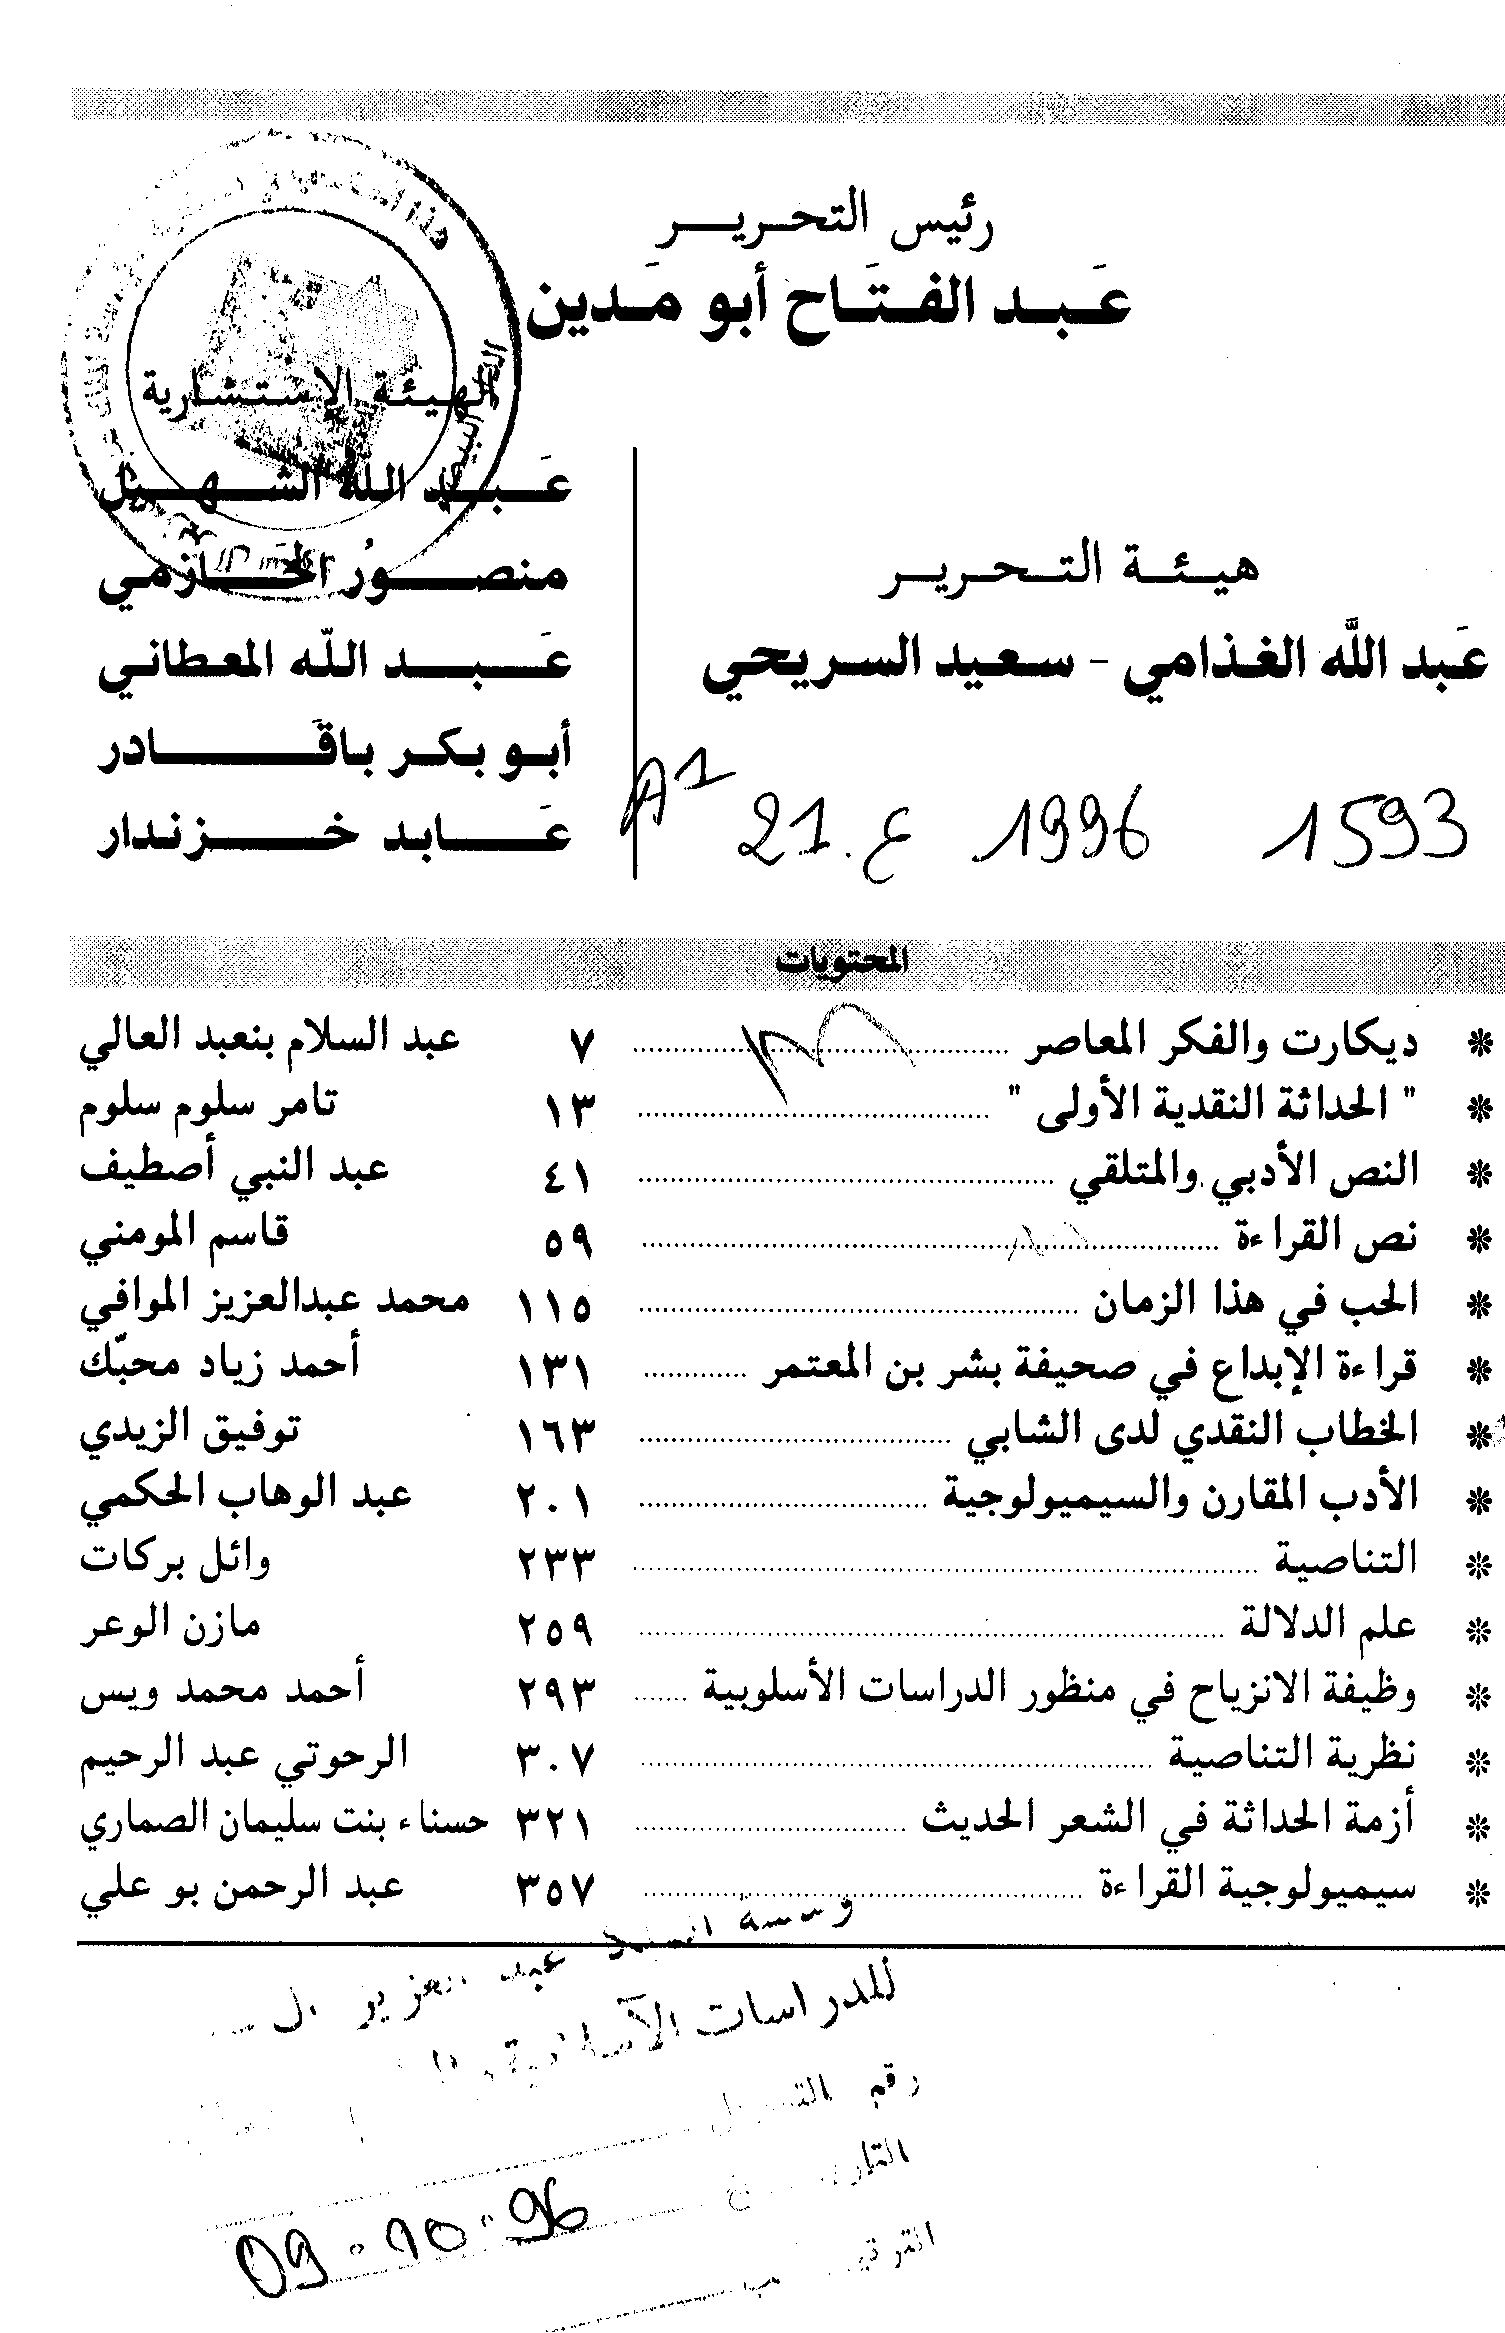 رئيس التحرير
عَبد الفتَاح أبو مَدين
الهيئة الإستشارية
عَبد الله الشهيل
منصورُ الحَازمي
عَبد اللّه المعطاني
أبو بكر باقَادر
عَابد خزندار
هيئة التحرير
عَبد اللَّه الغذامي - سعيد السريحي
A1 21.ع 1996 1593
المحتويات
* ديكارت والفكر المعاصر ........ ٧ عبد السلام بنعبد العالي
* " الحداثة النقدية الأولى " ........ ١٣ تامر سلوم سلوم
* النص الأدبي والمتلقي ........ ٤١ عبد النبي أصطيف
* نص القراءة ........ ٥٩ قاسم المومني
* الحب في هذا الزمان ........ ١١٥ محمد عبدالعزيز الموافي
* قراءة الإبداع في صحيفة بشر بن المعتمر ........ ١٣١ أحمد زياد محبّك
* الخطاب النقدي لدى الشابي ........ ١٦٣ توفيق الزيدي
* الأدب المقارن والسيميولوجية ........ ٢٠١ عبد الوهاب الحكمي
* التناصية ........ ٢٣٣ وائل بركات
* علم الدلالة ........ ٢٥٩ مازن الوعر
* وظيفة الانزياح في منظور الدراسات الأسلوبية ........ ٢٩٣ أحمد محمد ويس
* نظرية التناصية ........ ٣٠٧ الرحوتي عبد الرحيم
* أزمة الحداثة في الشعر الحديث ........ ٣٢١ حسناء بنت سليمان الصماري
* سيميولوجية القراءة ........ ٣٥٧ عبد الرحمن بو علي
عبد العزيز
للدراسات الآسلامية
رقم
09.10.96